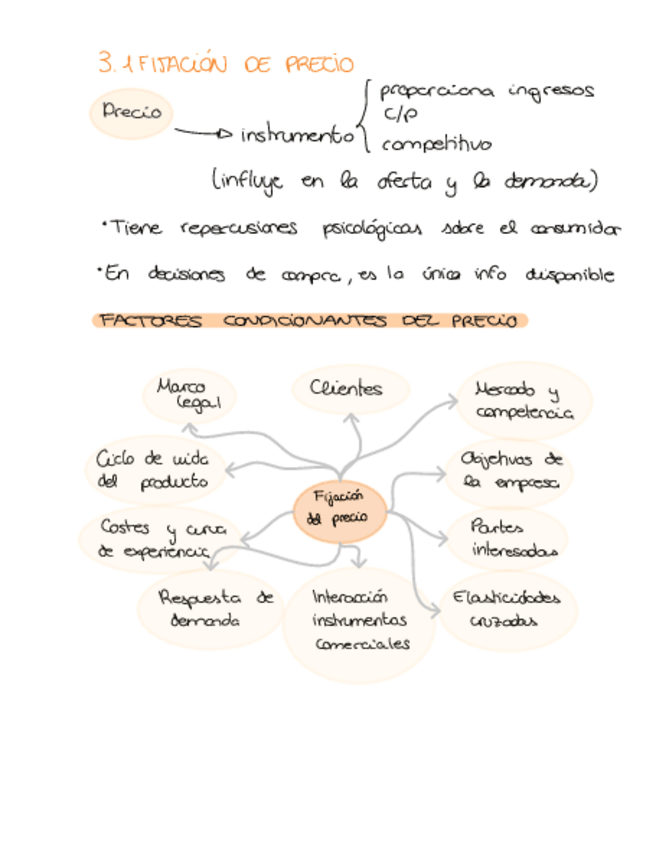 3.1 FIJACIÓN DE PRECIO
Precio
instrumento
proporciona ingresos
c/p
competitivo
(influye en la oferta y la demanda)
·Tiene repercusiones psicológicas sobre el consumidor
·En decisiones de compra, es la única info disponible
FACTORES CONDICIONANTES DEL PRECIO
Marco
legal
Clientes
Mercado y
competencia
Ciclo de vida
del producto
Objetivos de
la empresa
Fijación
del precio
Costes y curva
de experiencia
Partes
interesadas
Respuesta de
demanda
Interacción
instrumentos
comerciales
Elasticidades
cruzadas